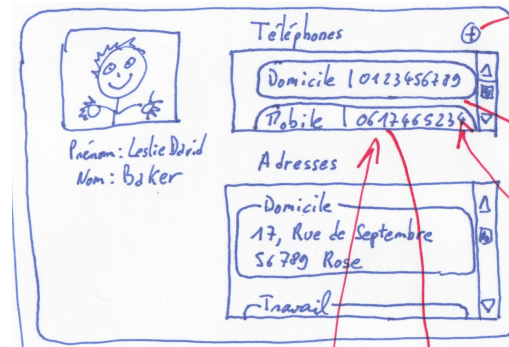 Téléphones
Domicile | 0123456789
Mobile | 0617465234
Prénom : Leslie David
Nom : Baker
Adresses
Domicile
17, Rue de Septembre
56789 Rose
Travail